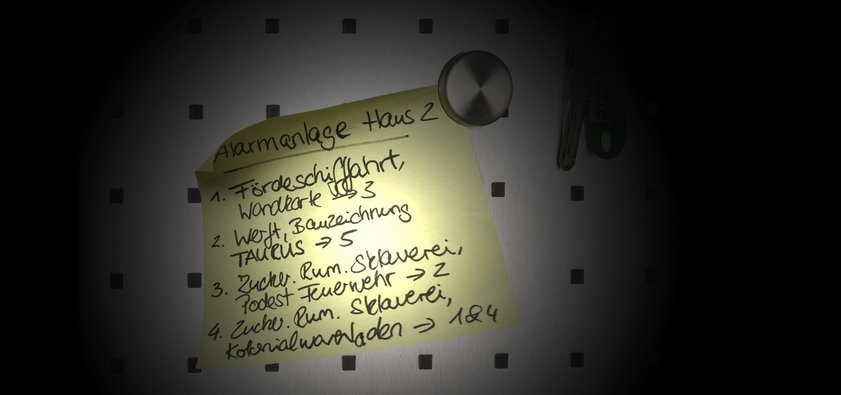 Alarmanlage Haus 2
1. Fördeschifffahrt,
Wandkarte → 3
2. Werft, Bauzeichnung
TAURUS → 5
3. Zucker. Rum. Sklaverei,
Podest Feuerwehr → 2
4. Zucker. Rum. Sklaverei,
Kolonialwarenladen → 1&4